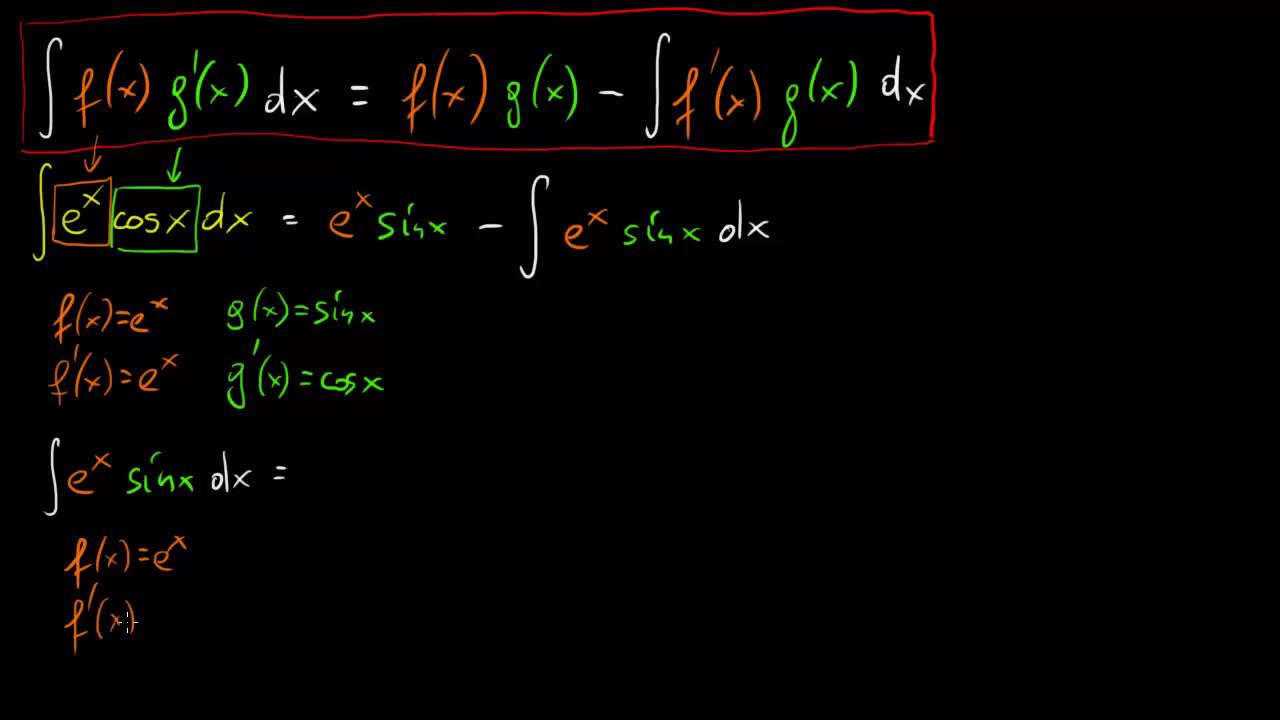 ∫ f(x) g'(x) dx = f(x) g(x) - ∫ f'(x) g(x) dx
∫ eˣ cosx dx = eˣ sinx - ∫ eˣ sinx dx
f(x)=eˣ g(x)=sinx
f'(x)=eˣ g'(x)=cosx
∫ eˣ sinx dx =
f(x)=eˣ
f'(x)